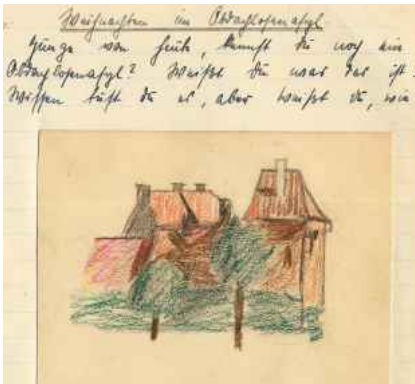 Weihnachten im Obdachlosenasyl
Junge von heute, kennst du noch ein
Obdachlosenasyl? Weißt Du was das ist.
Wissen tust du es, aber weißt du, wie